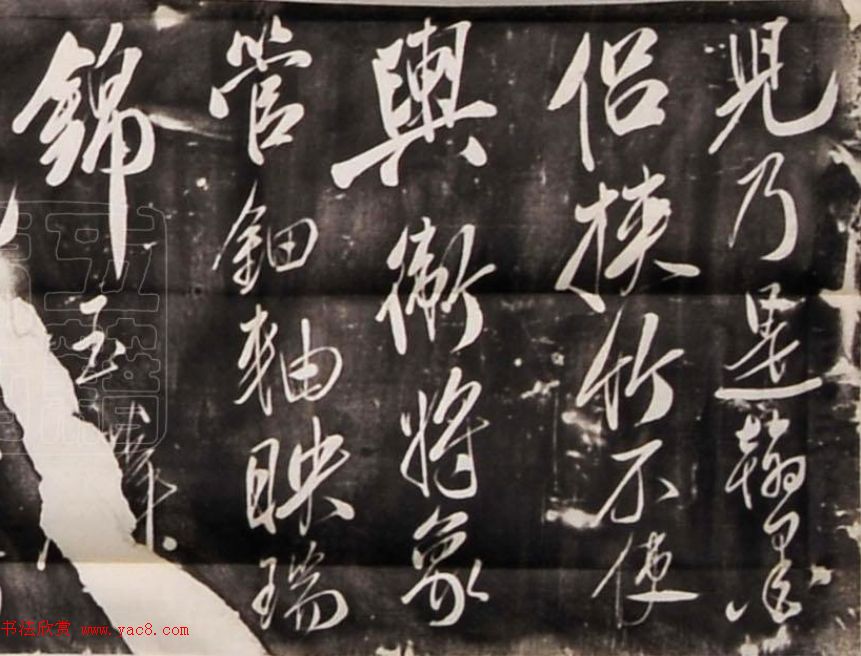 見乃是翰墨
侶挾竹不使
輿衛將象
管鈿軸映瑞
錦玉
书法欣赏 www.yac8.com